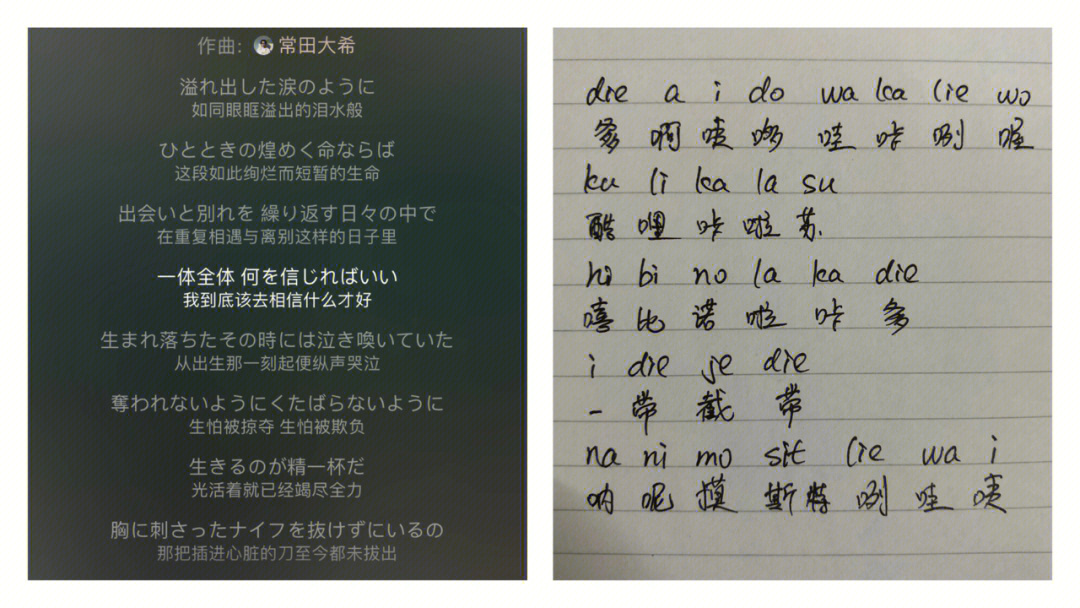 作曲: 常田大希
溢れ出した涙のように
如同眼眶溢出的泪水般
ひとときの煌めく命ならば
这段如此绚烂而短暂的生命
出会いと別れを 繰り返す日々の中で
在重复相遇与离别这样的日子里
一体全体 何を信じればいい
我到底该去相信什么才好
生まれ落ちたその時には泣き喚いていた
从出生那一刻起便纵声哭泣
奪われないようにくたばらないように
生怕被掠夺 生怕被欺负
生きるのが精一杯だ
光活着就已经竭尽全力
胸に刺さったナイフを抜けずにいるの
那把插进心脏的刀至今都未拔出
die a i do wa ka lie wo
爹啊唛哆哇咔咧喔
ku li ka la su
酷哩咔啦苏.
hi bi no la ka die
嘻比诺啦咔爹
i die je die
一带截带
na ni mo sit lie wa i
呐呢摸斯特咧哇唛